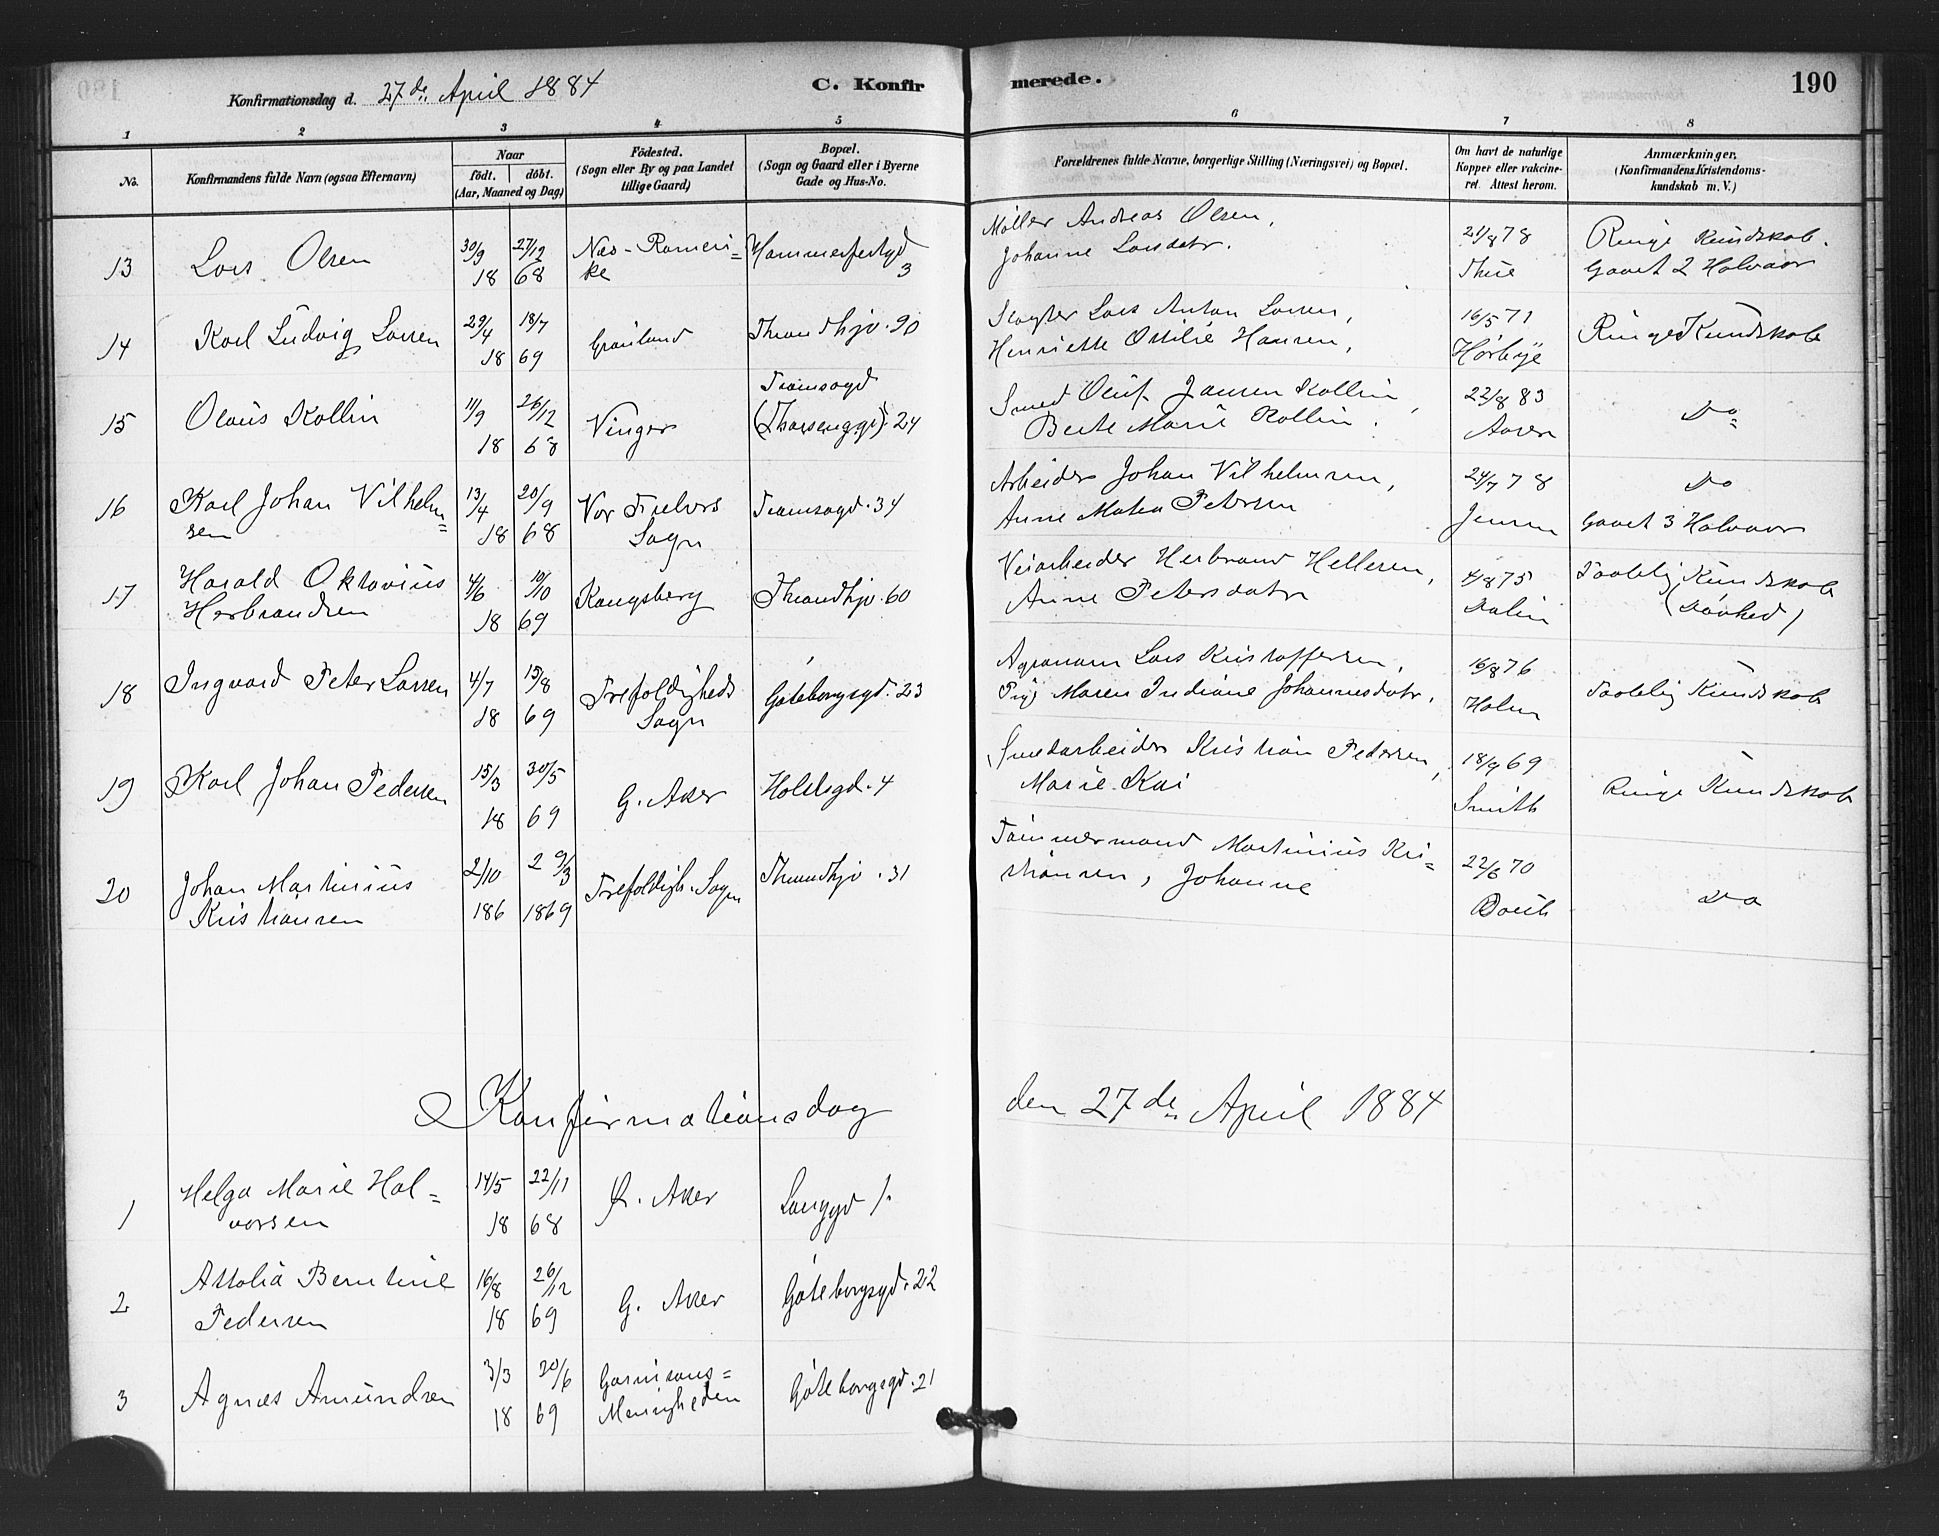 Konfirmationsdag d. 27de April 1884
C. Konfirmerede.
190
1 2 3 4 5 6 7 8
No.
Konfirmandens fulde Navn (ogsaa Efternavn)
Naar
födt. döbt.
(Aar, Maaned og Dag)
Födested.
(Sogn eller By og paa Landet
tillige Gaard)
Bopæl.
(Sogn og Gaard eller i Byerne
Gade og Hus-No.
Forældrenes fulde Navne, borgerlige Stilling (Næringsvei) og Bopæl.
Om havt de naturlige
Kopper eller vakcine-
ret. Attest herom.
Anmærkninger.
(Konfirmandens Kristendoms-
kundskab m. V.)
13 Lars Olsen 30/9 1868 27/12 68 Næs - Romeri=
ke
Hammerfestgd
3
Möller Andreas Olsen,
Johanne Larsdatr.
21/8 78
Thue
Ringe Kundskab.
Gaaet 2 Halvaar
14 Karl Ludvig Larsen 29/4 18/7
18 69
Grönland
Throndhjv. 90
Slagter Lars Anton Larsen,
Henriette Ottilie Hansen,
16/5 71
Hörbye
Ringe Kundskab
15 Olaus Kollin 11/9 26/12
18 68
Vinger
Tromsögd
(Thorsenggt) 24
Smed Oluf Jansen Kollin,
Berte Marie Kollin.
23/8 83
Aasen
Do
16 Karl Johan Vilhelm=
sen
13/4 20/9
18 68
Vor Frelsers
Sogn
Tromsögd. 34
Arbeider Johan Vilhelmsen,
Anne Mathea Petersen
24/7 78
Jensen
Do
Gaaet 3 Halvaar
17 Harald Oktavius
Herbrandsen
4/6 10/10
18 69
Kongsberg
Throndhjv. 60
Veiarbeider Herbrand Hellesen,
Anne Petersdatr
4/8 75
Dalin
Taalelig Kundskab
(Dövhed)
18 Ingvard Peter Larsen 4/7 15/8
18 69
Trefoldigheds
Sogn
Göteborgsgd. 23
Agronom Lars Kristoffersen,
Pig Maren Indiane Johannesdatr,
16/8 76
Holm
Taalelig Kundskab
19 Karl Johan Pedersen 15/3 30/5
18 69
G. Aker
Holstsgd. 4
Smedarbeider Kristian Pedersen,
Marie Kai
18/9 69
Smith
Ringe Kundskab
20 Johan Martinius
Kristiansen
2/10 2 9/3
186 1869
Trefoldigh. Sogn
Throndhjv. 31
Tömmermand Martinius Kri=
stiansen, Johanne
22/6 70
Do
Konfirmationsdag den 27de April 1884
1 Helga Marie Hal=
vorsen
14/5 22/11
18 68
Ö. Aker
Langgd 1.
2 Attolia Berntine
Pedersen
16/8 26/12
18 69
G. Aker
Göteborgsgd. 22
3 Agnæs Amundsen 3/3 20/6
18 69
Garnisons=
Menigheden
Göteborgsgd. 21